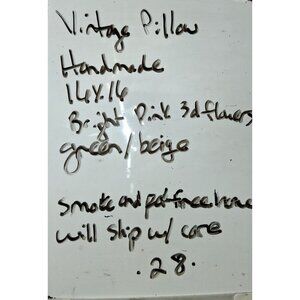 Vintage Pillow
Handmade
16x16
Bright Pink 3d flowers
green/beige
smoke and pet free home
will ship w/ care
.28.